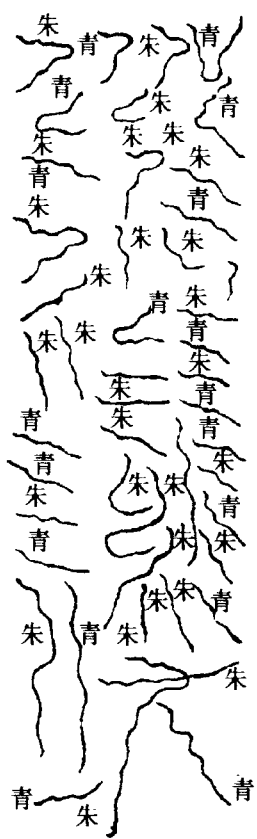 朱 青 朱 青
青 朱 青
朱 朱 朱 朱
青 青
朱 朱 朱
朱 青 朱
朱 朱 青
朱
朱 青
青 朱 青
青 朱
朱 朱 朱 青
青 朱 朱
朱 朱 青
朱 青 朱
朱
青 青
朱